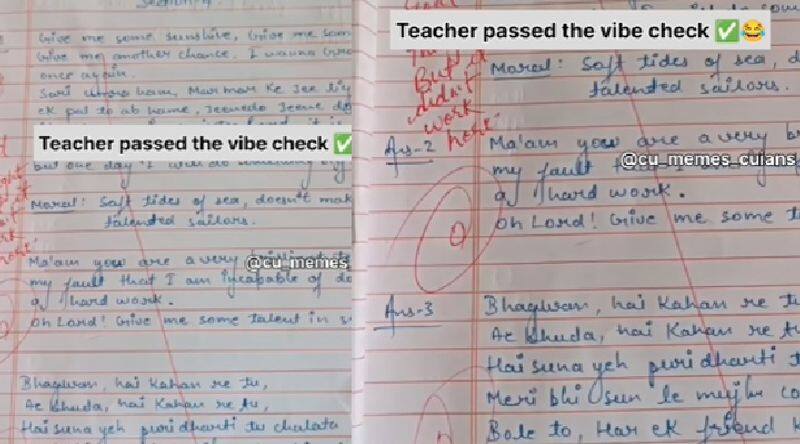 Give me some sunshine, Give me som
Give me another chance. I wanna
once again.
Sari umra ham, Mar mar ke jee liy
ek pal to ab hame, Jeenedo Jeene do
Teacher passed the vibe check ✅
but one day I will do something
Moral: Soft tides of sea, doesn't mak
talented sailors.
Ma'am you are a very
@cu_memes
my fault that I am incapable of do
a hard work.
Oh Lord! Give me some talent in s
Bhagwan, hai kahan re tu,
Ae khuda, hai kahan re tu,
Hai suna yeh puri dharti tu chalata
Teacher passed the vibe check ✅😂
But it
didn't
work
here
Moral: Soft tides of sea, d
talented sailors.
Ans-2
Ma'am you are a very b
@cu_memes_cuians
my fault
a hard work.
Oh Lord! Give me some t
0
Ans-3
Bhagwan, hai kahan re tu
Ae khuda, hai kahan re tu
Hai suna yeh puri dharti t
Meri bhi sun le mujhr co
Bole to, Har ek friend k